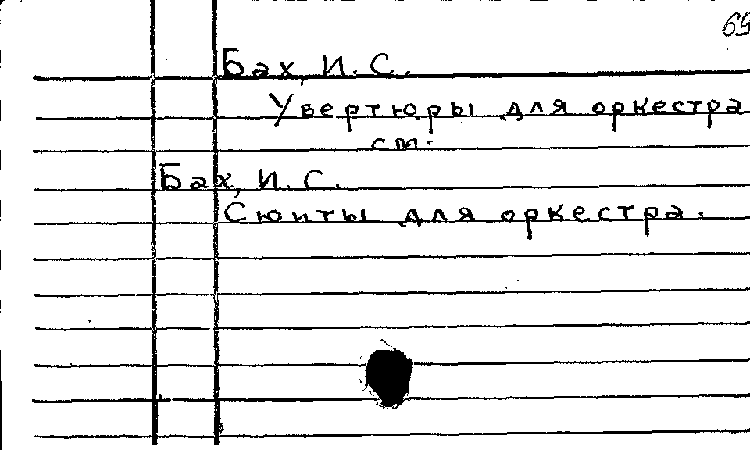 69
Бах, И. С.
Увертюры для оркестра
см.
Бах, И. С.
Сюиты для оркестра.